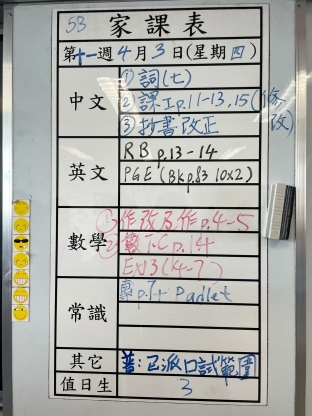 53
家課表
第十一週4月3日(星期四)
中文
①詞(七)
②課工p.11-13,15(修改)
③抄書改正
英文
RB p.13-14
PGE (Bk p.83 10x2)
數學
①作改及作p.4-5
②數T.C p.14
Ex13(4-7)
常識
p.7+ Padlet
其它
普:已派口試範圍
值日生
3